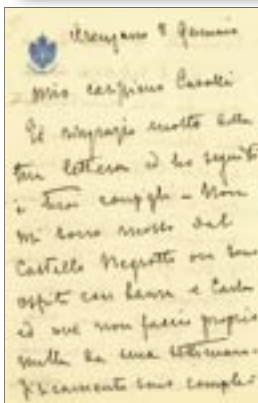 Arenzano 8 Gennaio
Mio carissimo Casalli
Ti ringrazio molto della
tua lettera ed ho seguito
i tuoi consigli - Non
mi sono mosso dal
Castello Negrotto ove sono
ospite con Laura e Carlo
ed ove non faccio proprio
nulla da una settimana.
Fisicamente sono